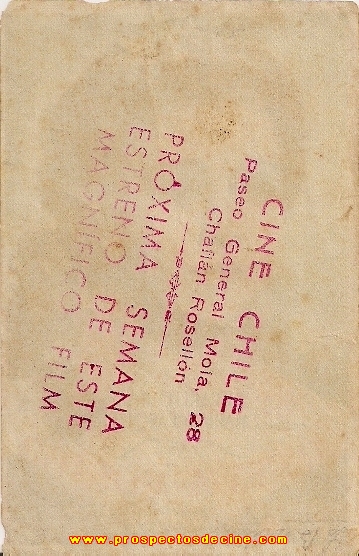 CINE CHILE
Paseo General Mola, 28
Chaflán Rosellón
PRÓXIMA SEMANA
ESTRENO DE ESTE
MAGNÍFICO FILM
www.prospectosdecine.com